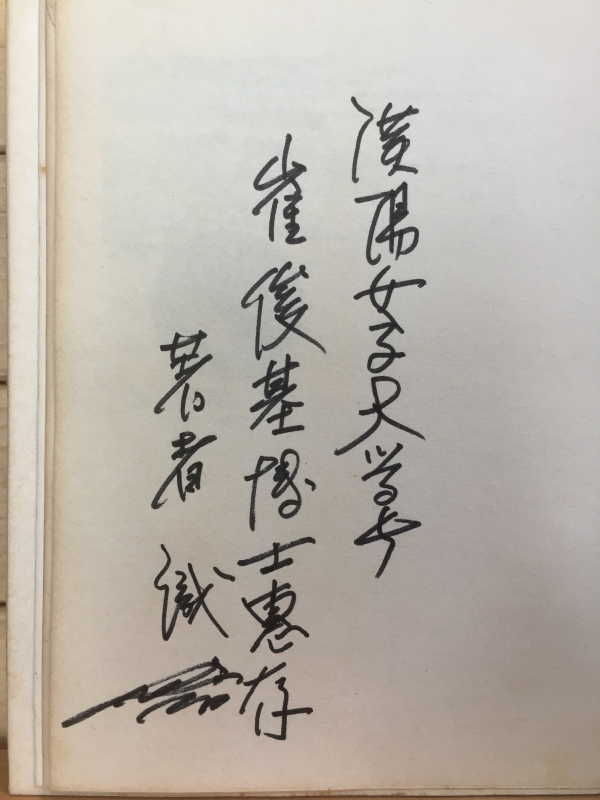 漢陽女子大学長
崔俊基博士惠存
著者 識